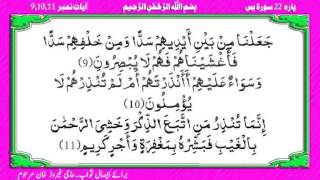 پارہ 22 سورۃ یس بِسْمِ اللهِ الرَّحْمٰنِ الرَّحِيْمِ آیات نمبر 9,10,11
جَعَلْنَا مِنْ بَيْنِ أَيْدِيهِمْ سَدًّا وَمِنْ خَلْفِهِمْ سَدًّا
فَأَغْشَيْنَاهُمْ فَهُمْ لَا يُبْصِرُونَ (9)
وَسَوَاءٌ عَلَيْهِمْ أَأَنْذَرْتَهُمْ أَمْ لَمْ تُنْذِرْهُمْ لَا
يُؤْمِنُونَ (10)
إِنَّمَا تُنْذِرُ مَنِ اتَّبَعَ الذِّكْرَ وَخَشِيَ الرَّحْمَٰنَ
بِالْغَيْبِ فَبَشِّرْهُ بِمَغْفِرَةٍ وَأَجْرٍ كَرِيمٍ (11)
برائے ایصال ثواب۔حاجی فیروز خان مرحوم